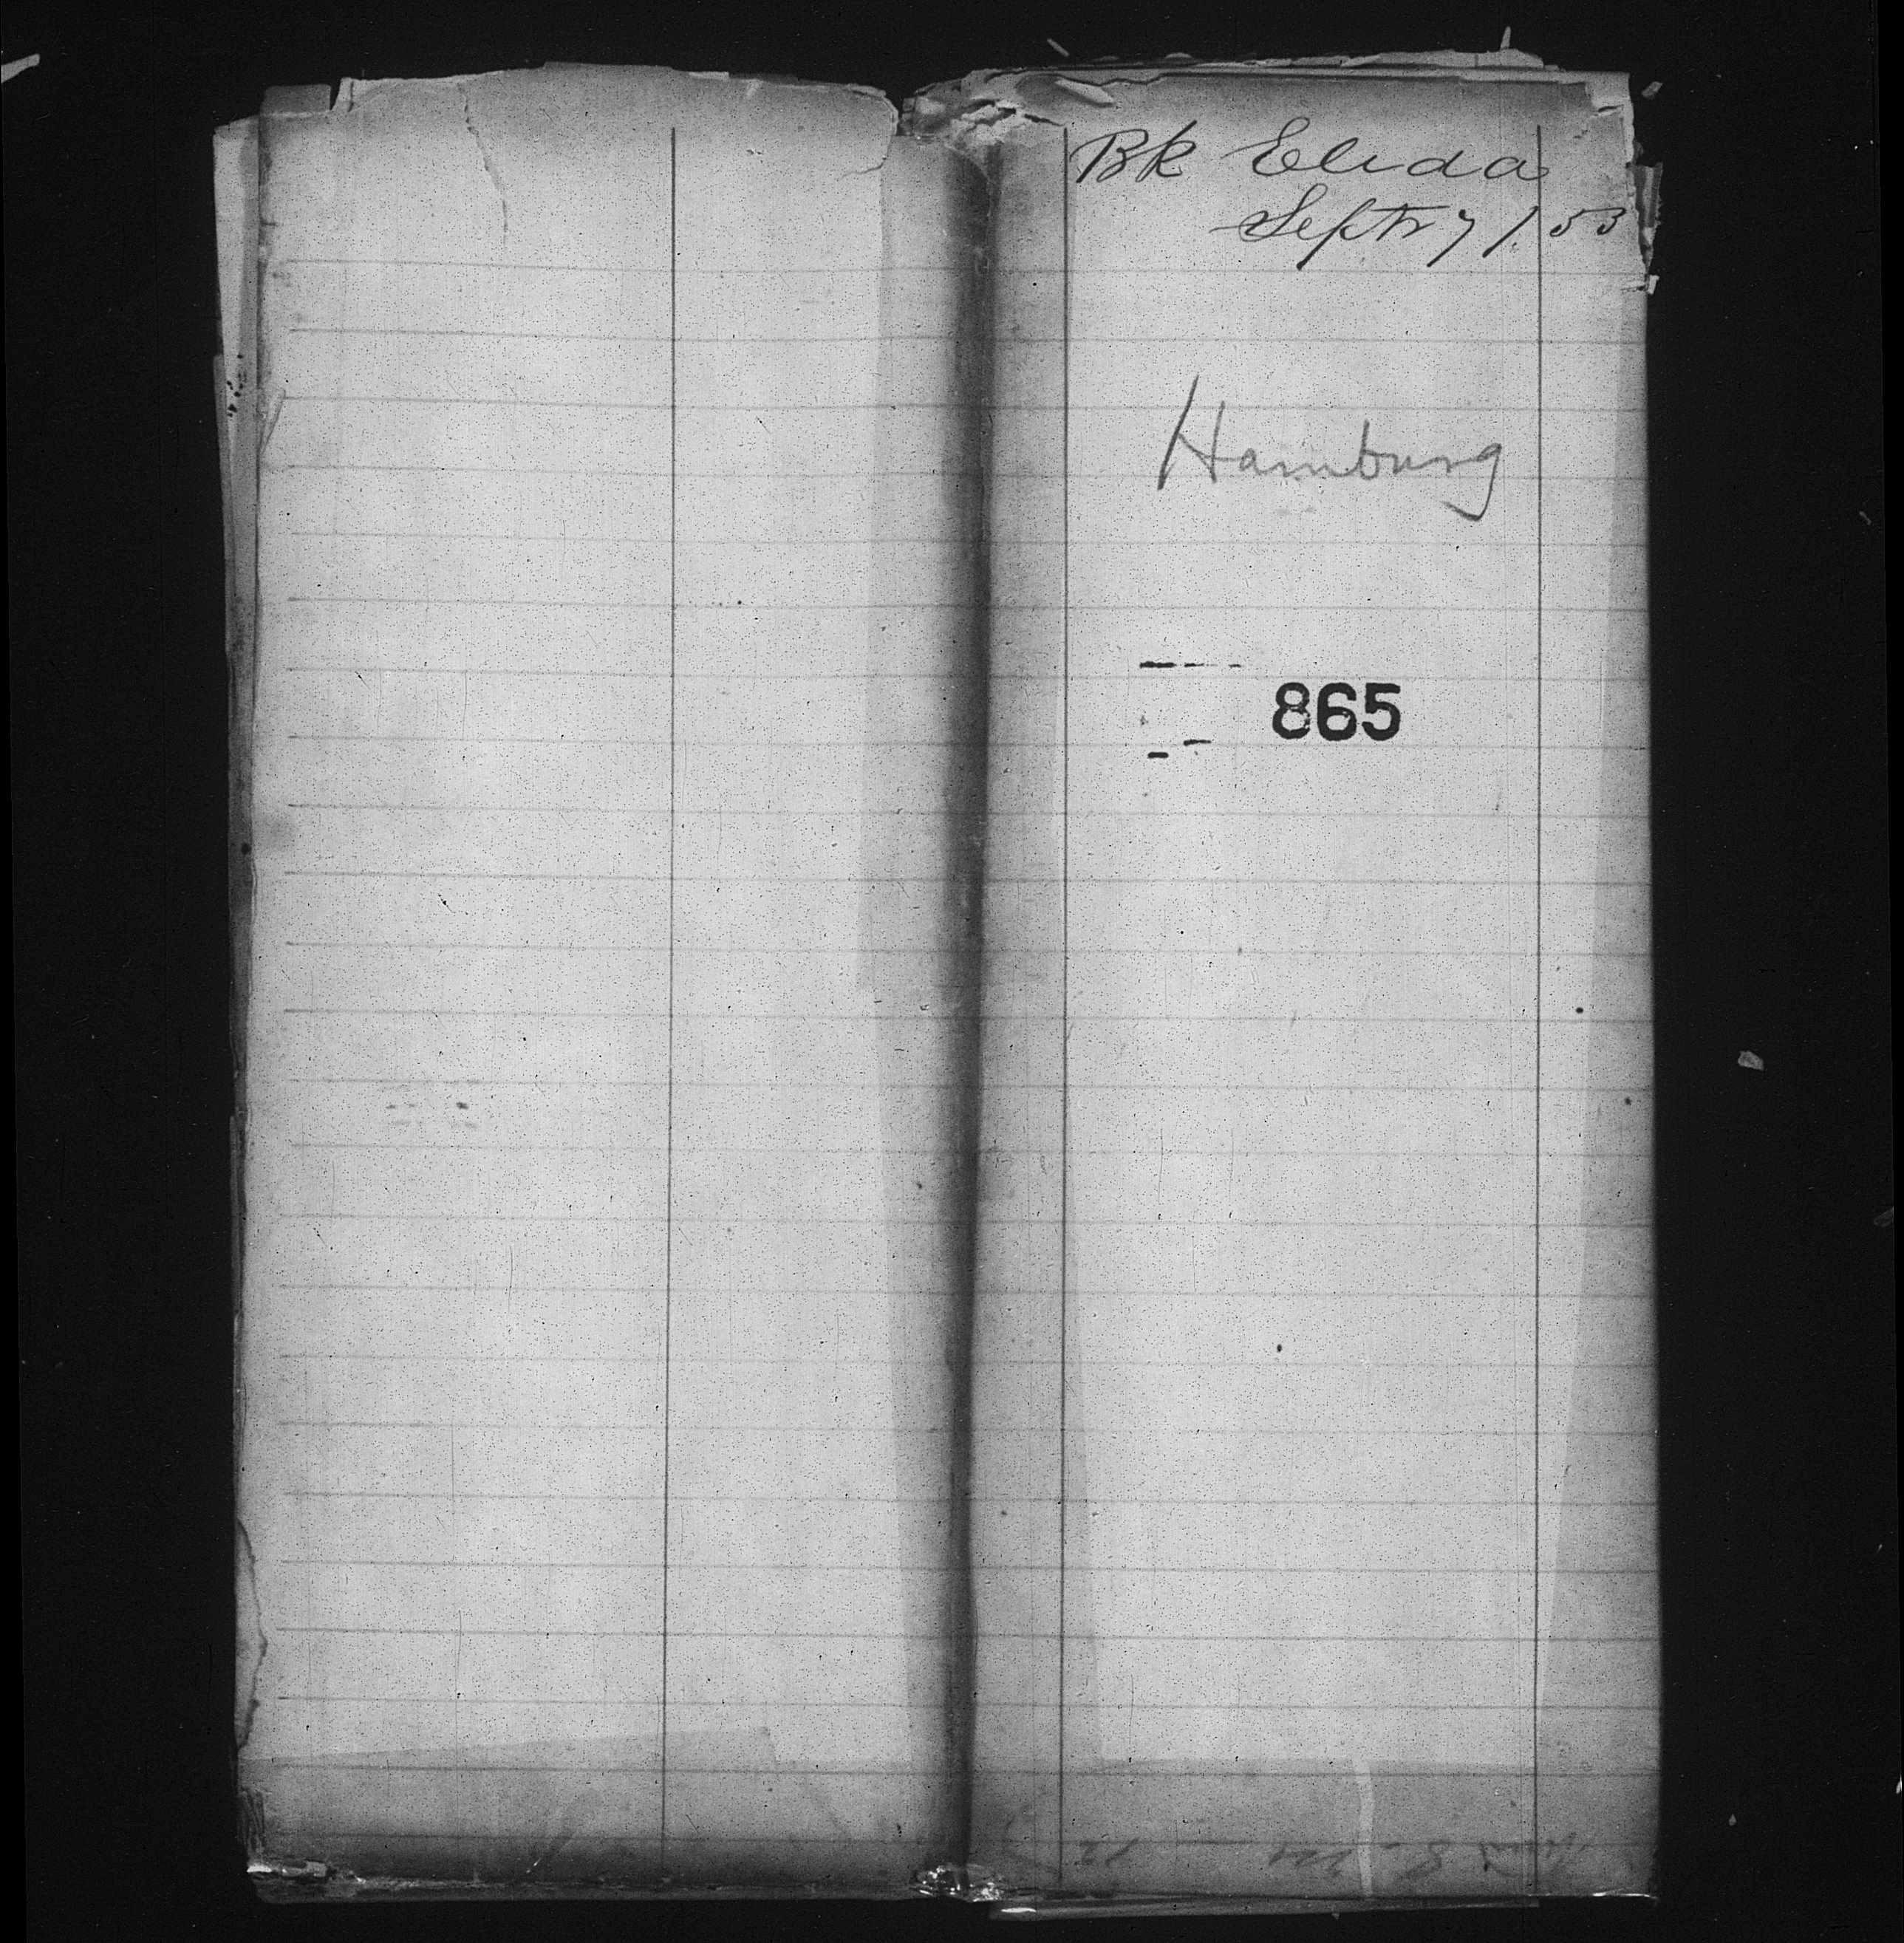 Bk Elida
Septr 7/53
Hamburg
865